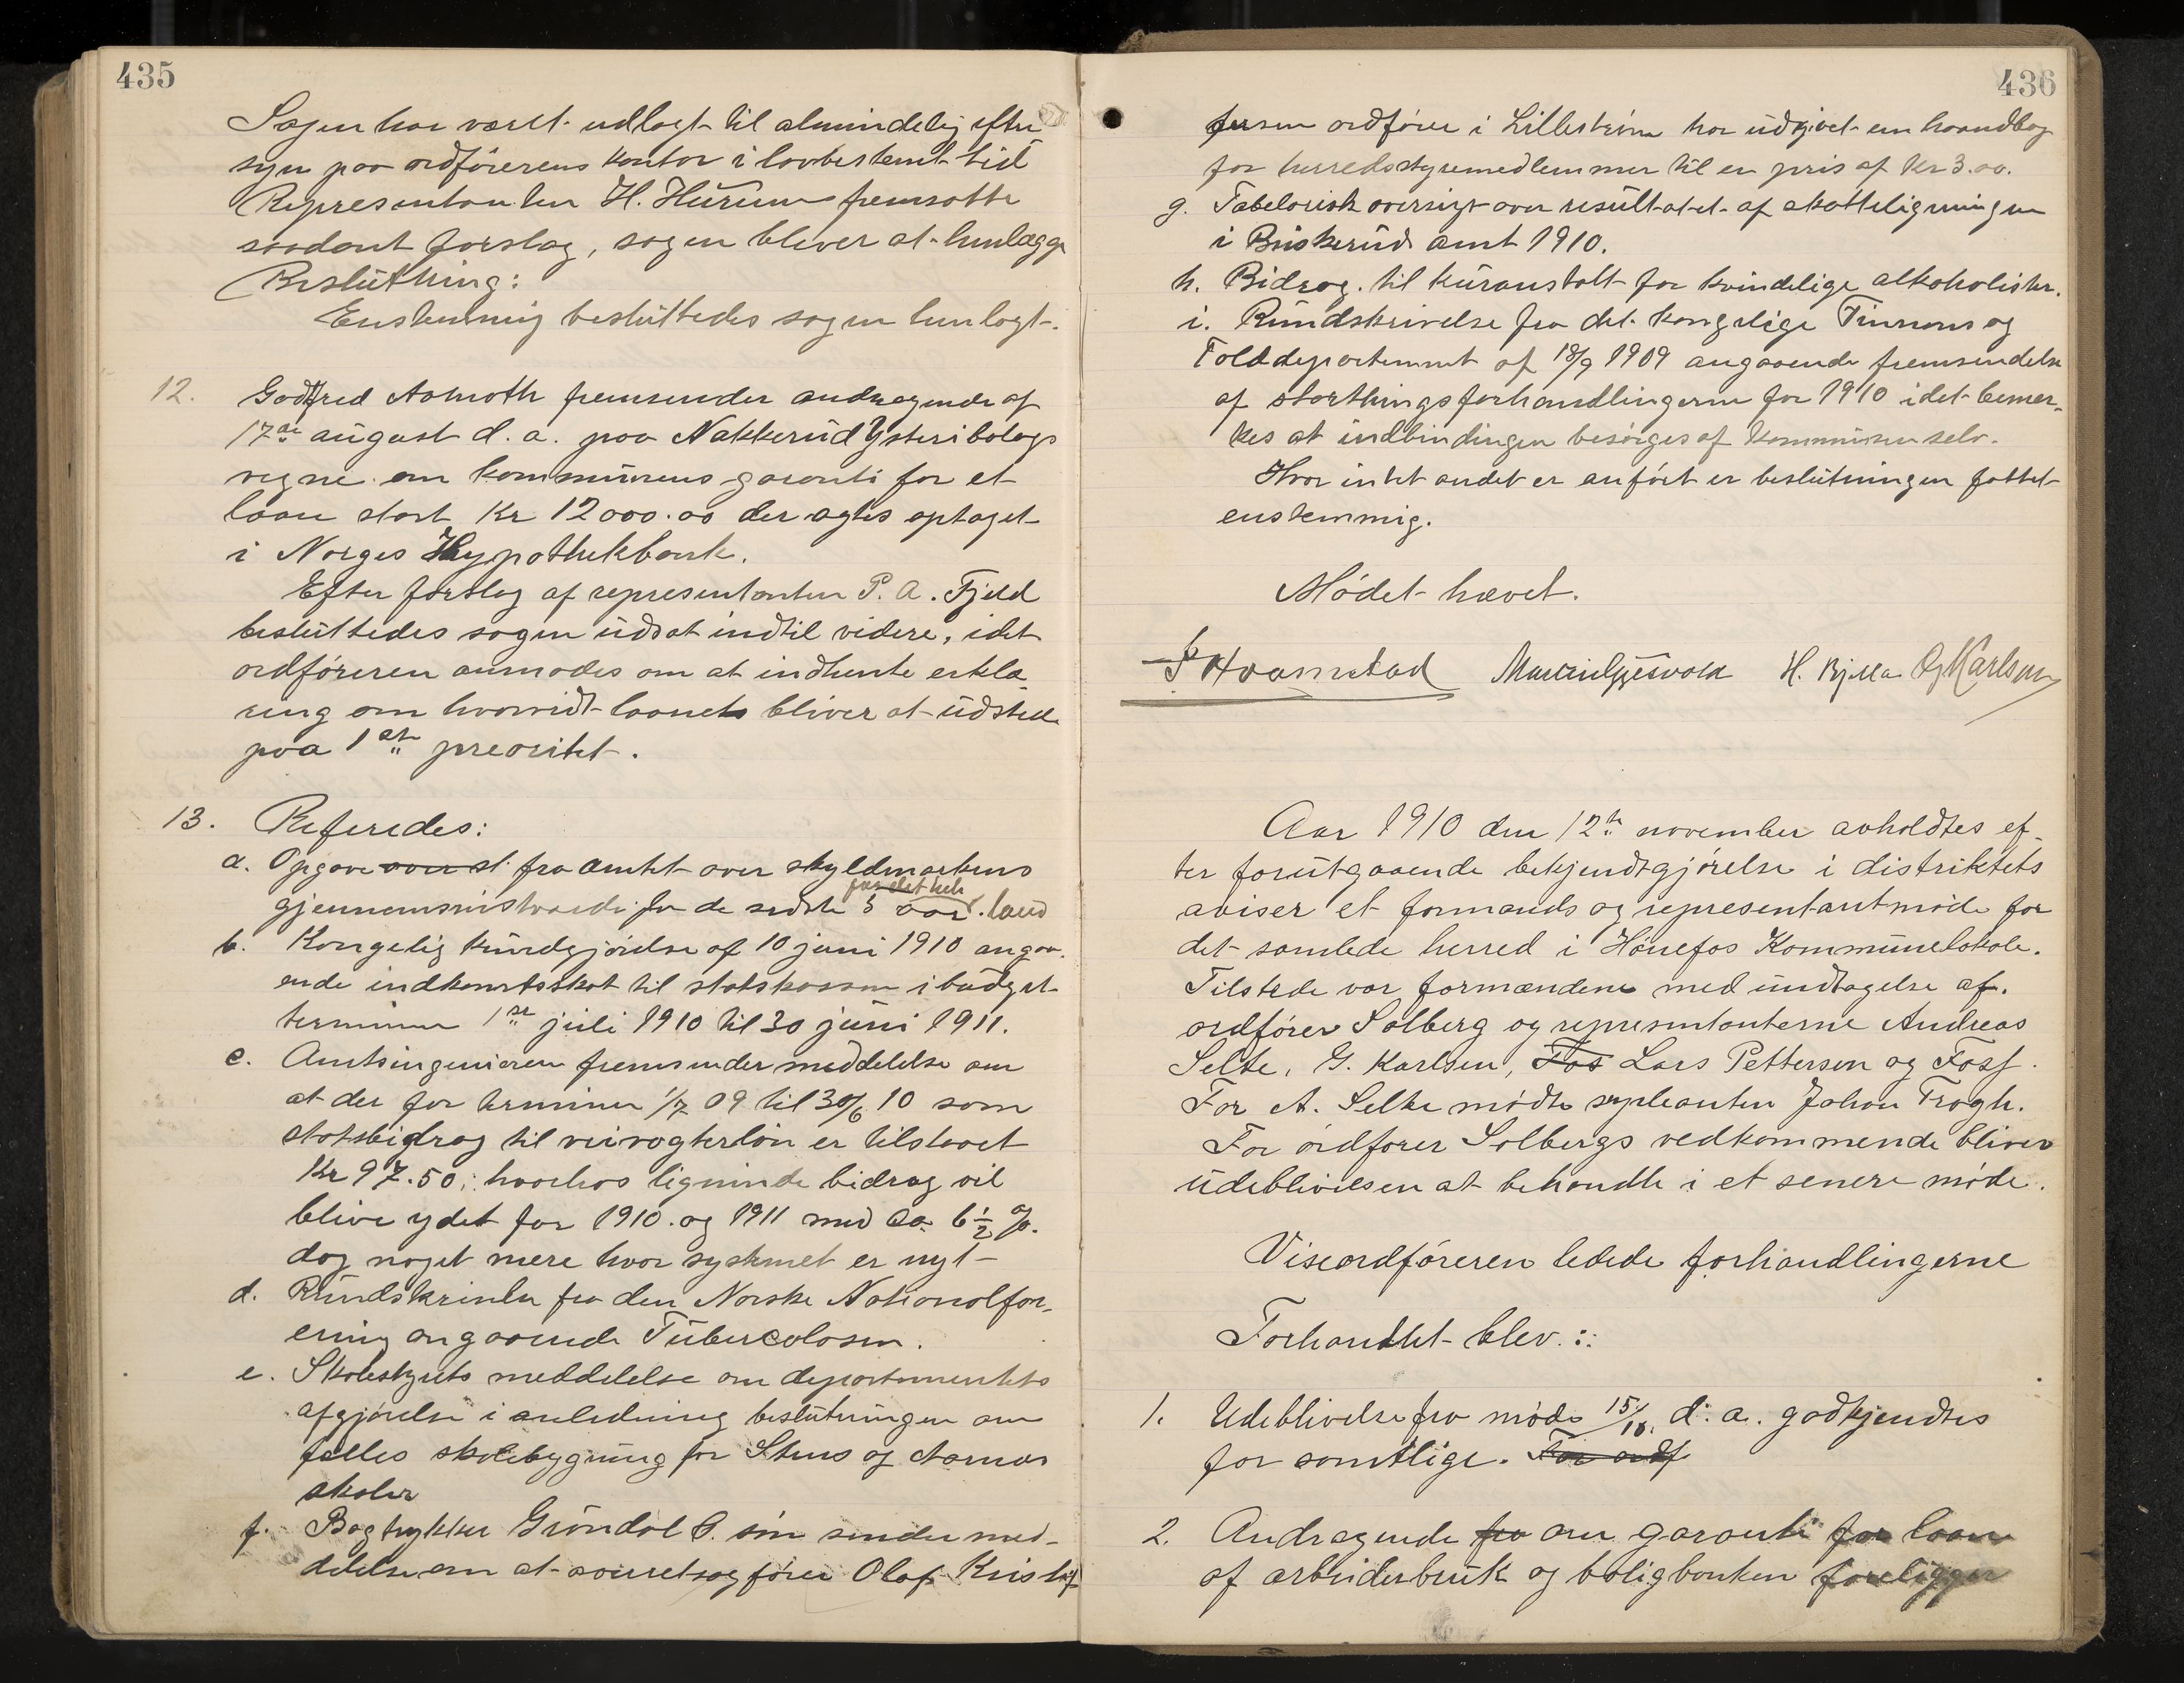 435
Sagen har været udlagt til almindelig efter
syn paa ordførerens kontor i lovbestemt tid
Representanten H. Hurum fremsatte
saadant forslag, sagen bliver at henlægge
Beslutning:
Enstemmig besluttedes sagen henlagt.
12. Godtfred Aamoth fremsender andragende af
17de august d. a. paa Nakkerud Ysteribolags
vegne om kommunens garanti for et
laan stort Kr 12000.00 der agtes optaget
i Norges Hypothekbank.
Efter forslag af representanten P. A. Fjeld
besluttedes sagen udsat indtil videre, idet
ordføreren anmodes om at indhente erklæ-
ring om hvorvidt laanets bliver at udstede
paa 1ste preoritet.
13. Referedes:
a. Opgave over st. fra amtet over skyldmarkens
for det hele
gjennemsnitsværdi for de sidste 5 aar. land
b. Kongelig kundgjørelse af 10 juni 1910 angaa-
ende indkomstskat til statskassen i budget
terminen 1ste juli 1910 til 30 juni 1911.
c. Amtsingeniøren fremsender meddelelse om
at der for terminen 1/7 09 til 30/6 10 som
statsbidrag til veivogterløn er tilstaaet
Kr 97.50; hvorhos lignende bidrag vil
blive ydet for 1910 og 1911 med ca 6 1/2 %.
dog noget mere hvor systemet er nyt
d. Rundskrivelse fra den Norske Nationalfor-
ening angaaende Tuberculosen.
e. Skolestyrets meddelelse om departementets
afgjørelse i anledning beslutningen om
fælles skolebygning for Stens og Aarnes
skoler
f. Bogtrykker Grøndal & søn sender med-
delelse om at overretssagfører Olaf Kristof
436
fersen ordfører i Lillestrøm har udgivet en haandbog
for herredsstyremedlemmer til en pris af Kr 3.00.
g. Tabelarisk oversigt over resultatet af skatteligningen
i Buskerud amt 1910.
h. Bidrag til kuranstalt for kvindelige alkoholister.
i. Rundskrivelse fra det kongelige Finnans og
Tolddepartement af 18/9 1909 angaaende fremsendelse
af storthingsforhandlingerne for 1910 idet bemer-
kes at indbindingen besørges af kommunen selv.
Hvor intet andet er anført er beslutningen fattet
enstemmig.
Mødet hævet.
Hvamstad H. Bjella G Karlsen
Aar 1910 den 12te november avholdtes ef-
ter forutgaaende bekjendtgjørelse i distriktets
aviser et formands og representantmøde for
det samlede herred i Hønefos Kommunelokale.
Tilstede var formændene med undtagelse af
ordfører Solberg og representanterne Andreas
Selte, G. Karlsen, Fos Lars Pettersen og Foss.
For A. Selte mødte supleanten Johan Trøgh.
For ordfører Solbergs vedkommende bliver
udeblivelsen at behandle i et senere møde.
Viseordføreren ledede forhandlingerne
Forhandlet blev.:
1. Udeblivelse fra møde 15/10. d. a. godkjendtes
for samtlige. For ordf
2. Andragende fra om garanti for laan
af arbeiderbruk og boligbanken foreligger